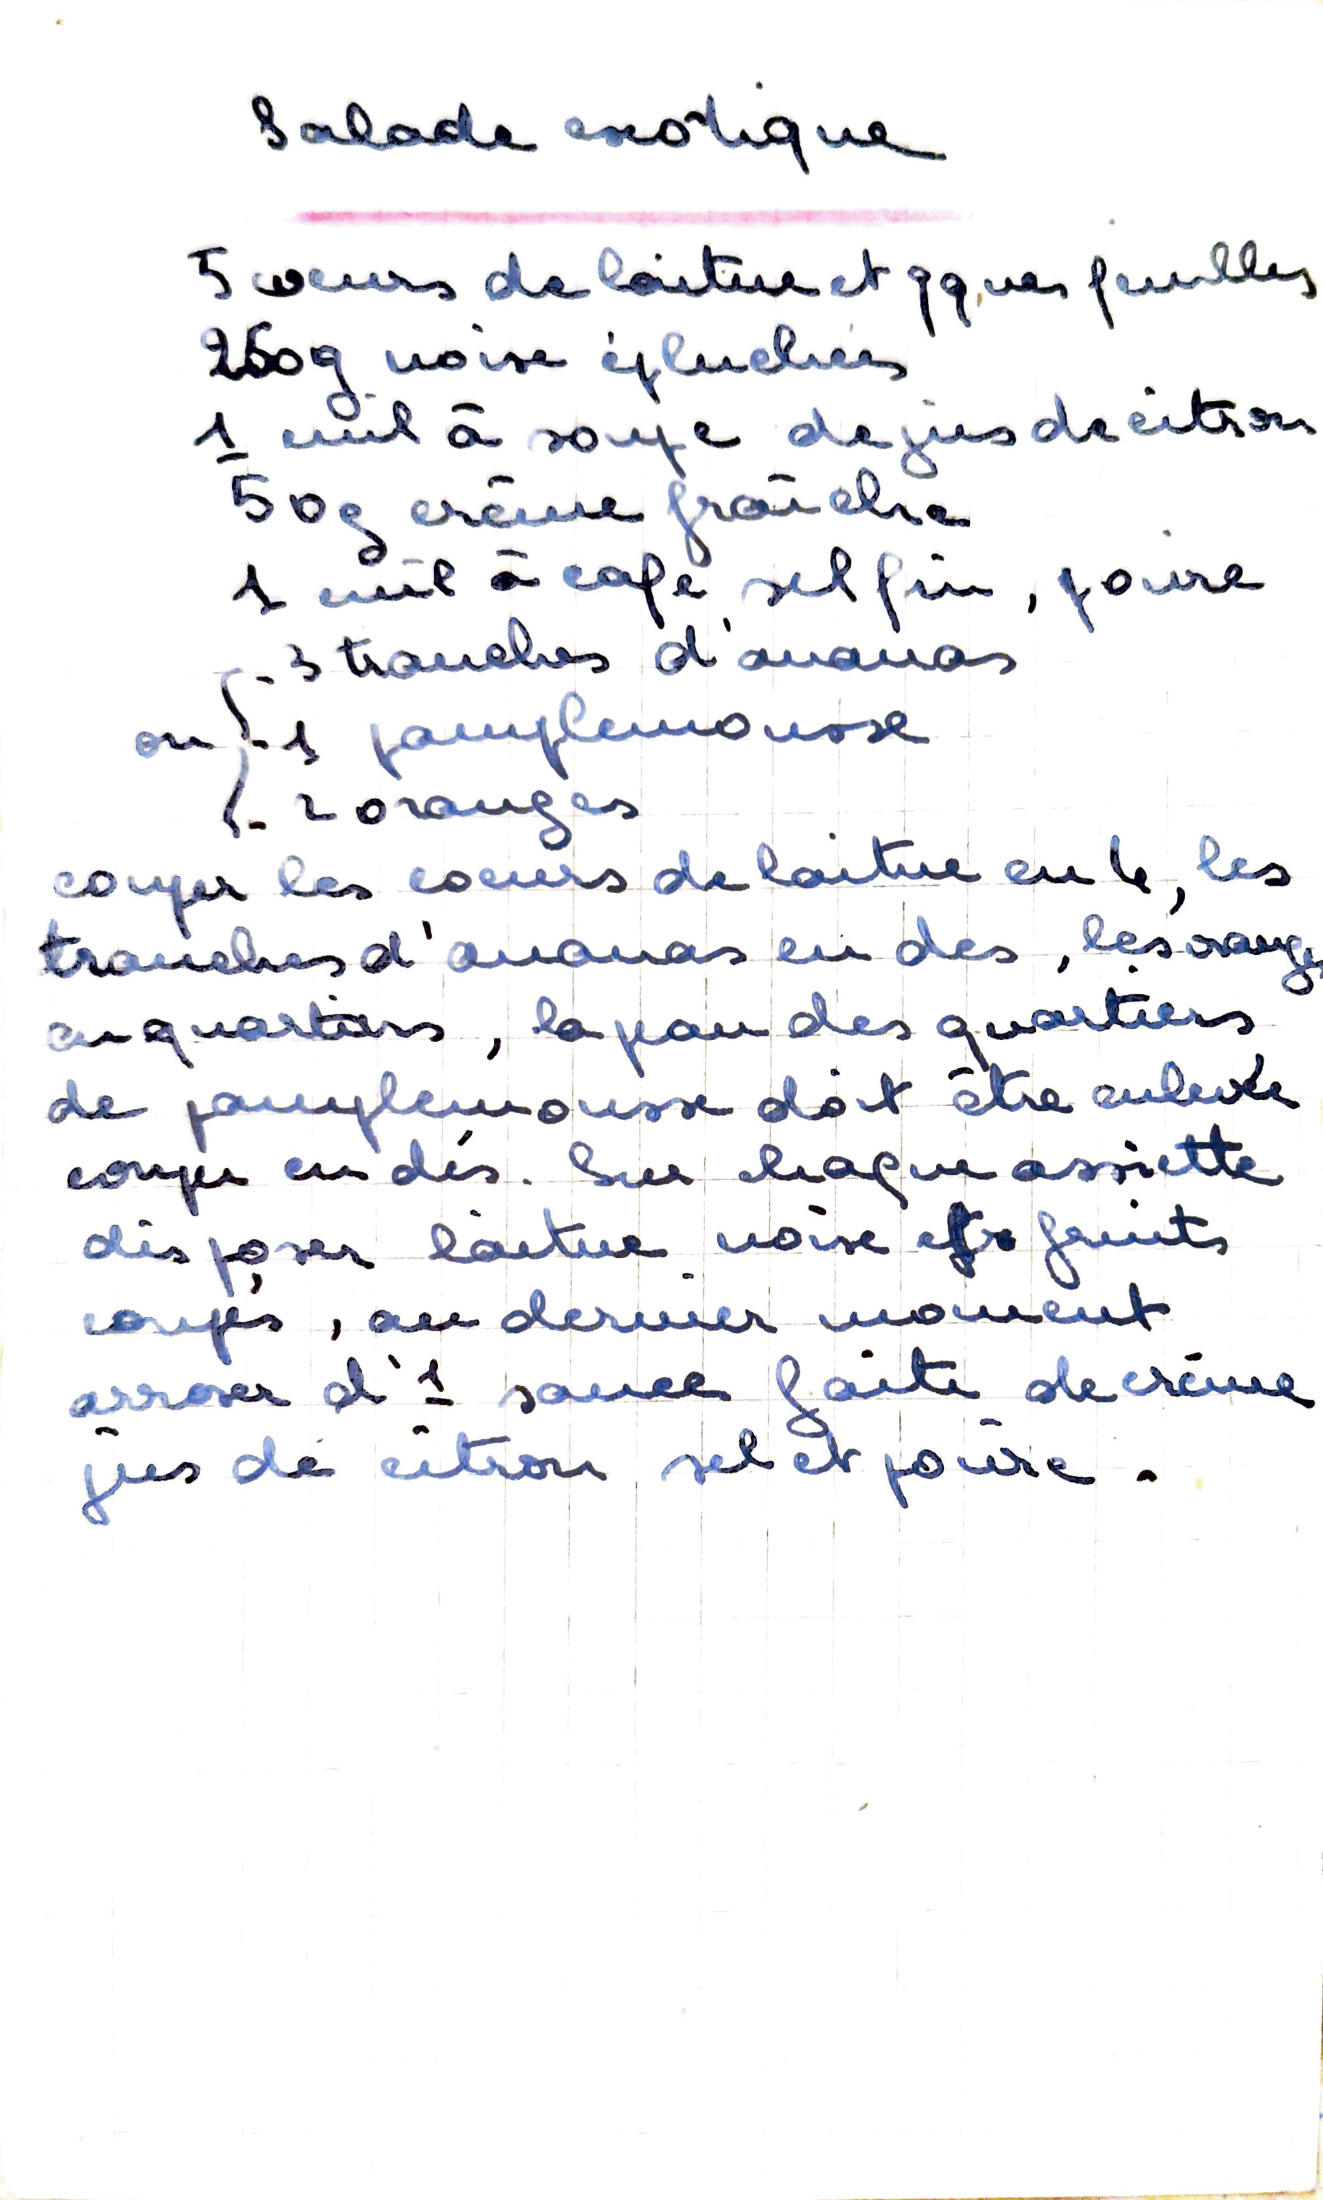 Salade exotique
5 coeurs de laitue et qques feuilles
250g noix épluchées
1 cuil à soupe de jus de citron
50g crème fraîche
1 cuil à café sel fin, poivre
- 3 tranches d'ananas
ou - 1 pamplemousse
- 2 oranges
couper les coeurs de laitue en 4, les
tranches d'ananas en des, les oranges
en quartiers, la peau des quartiers
de pamplemousse doit être enlevée
couper en dés. Sur chaque assiette
disposer laitue noix et fruits
coupés, au dernier moment
arroser d'1 sauce faite de crème
jus de citron sel et poivre.